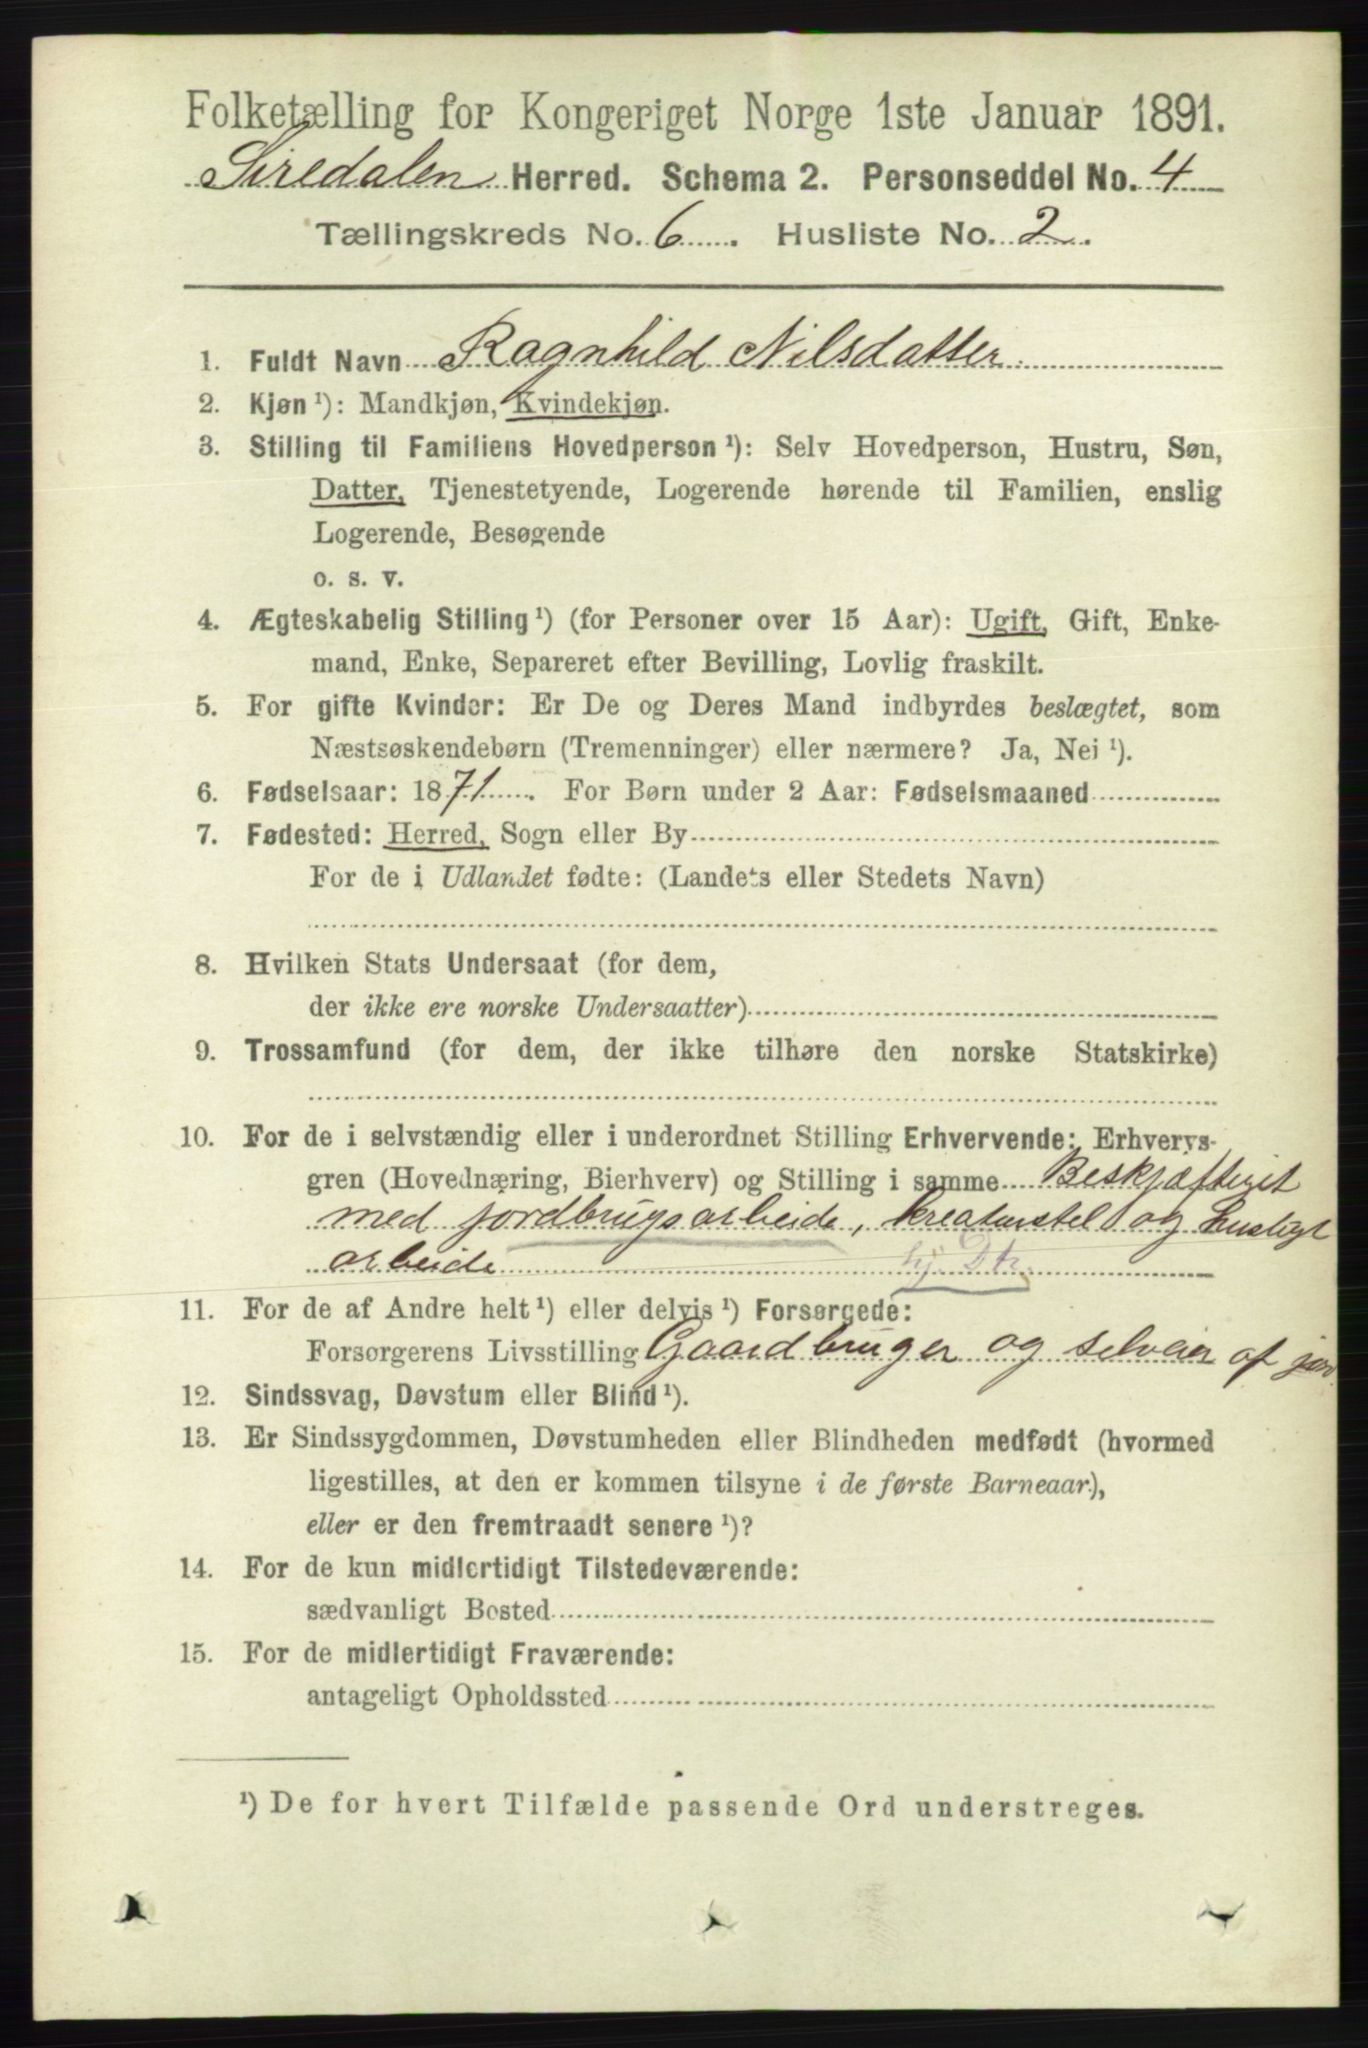 Folketælling for Kongeriget Norge 1ste Januar 1891.
Siredalen Herred. Schema 2. Personseddel No. 4
Tællingskreds No. 6. Husliste No. 2.
1. Fuldt Navn Ragnhild Nilsdatter
2. Kjøn ¹): Mandkjøn, Kvindekjøn.
3. Stilling til Familiens Hovedperson ¹): Selv Hovedperson, Hustru, Søn,
Datter, Tjenestetyende, Logerende hørende til Familien, enslig
Logerende, Besøgende
o. s. v.
4. Ægteskabelig Stilling ¹) (for Personer over 15 Aar): Ugift, Gift, Enke-
mand, Enke, Separeret efter Bevilling, Lovlig fraskilt.
5. For gifte Kvinder: Er De og Deres Mand indbyrdes beslægtet, som
Næstsøskendebørn (Tremenninger) eller nærmere? Ja, Nei ¹).
6. Fødselsaar: 1871. For Børn under 2 Aar: Fødselsmaaned
7. Fødested: Herred, Sogn eller By
For de i Udlandet fødte: (Landets eller Stedets Navn)
8. Hvilken Stats Undersaat (for dem,
der ikke ere norske Undersaatter)
9. Trossamfund (for dem, der ikke tilhøre den norske Statskirke)
10. For de i selvstændig eller i underordnet Stilling Erhvervende: Erhvervs-
gren (Hovednæring, Bierhverv) og Stilling i samme Beskjæftiget
med jordbrugsarbeide, kreaturstel og husligt
arbeide hj. Dtr.
11. For de af Andre helt ¹) eller delvis ¹) Forsørgede:
Forsørgerens Livsstilling Gaardbruger og selveier af jord
12. Sindssvag, Døvstum eller Blind ¹).
13. Er Sindssygdommen, Døvstumheden eller Blindheden medfødt (hvormed
ligestilles, at den er kommen tilsyne i de første Barneaar),
eller er den fremtraadt senere ¹)?
14. For de kun midlertidigt Tilstedeværende:
sædvanligt Bosted
15. For de midlertidigt Fraværende:
antageligt Opholdssted
¹) De for hvert Tilfælde passende Ord understreges.